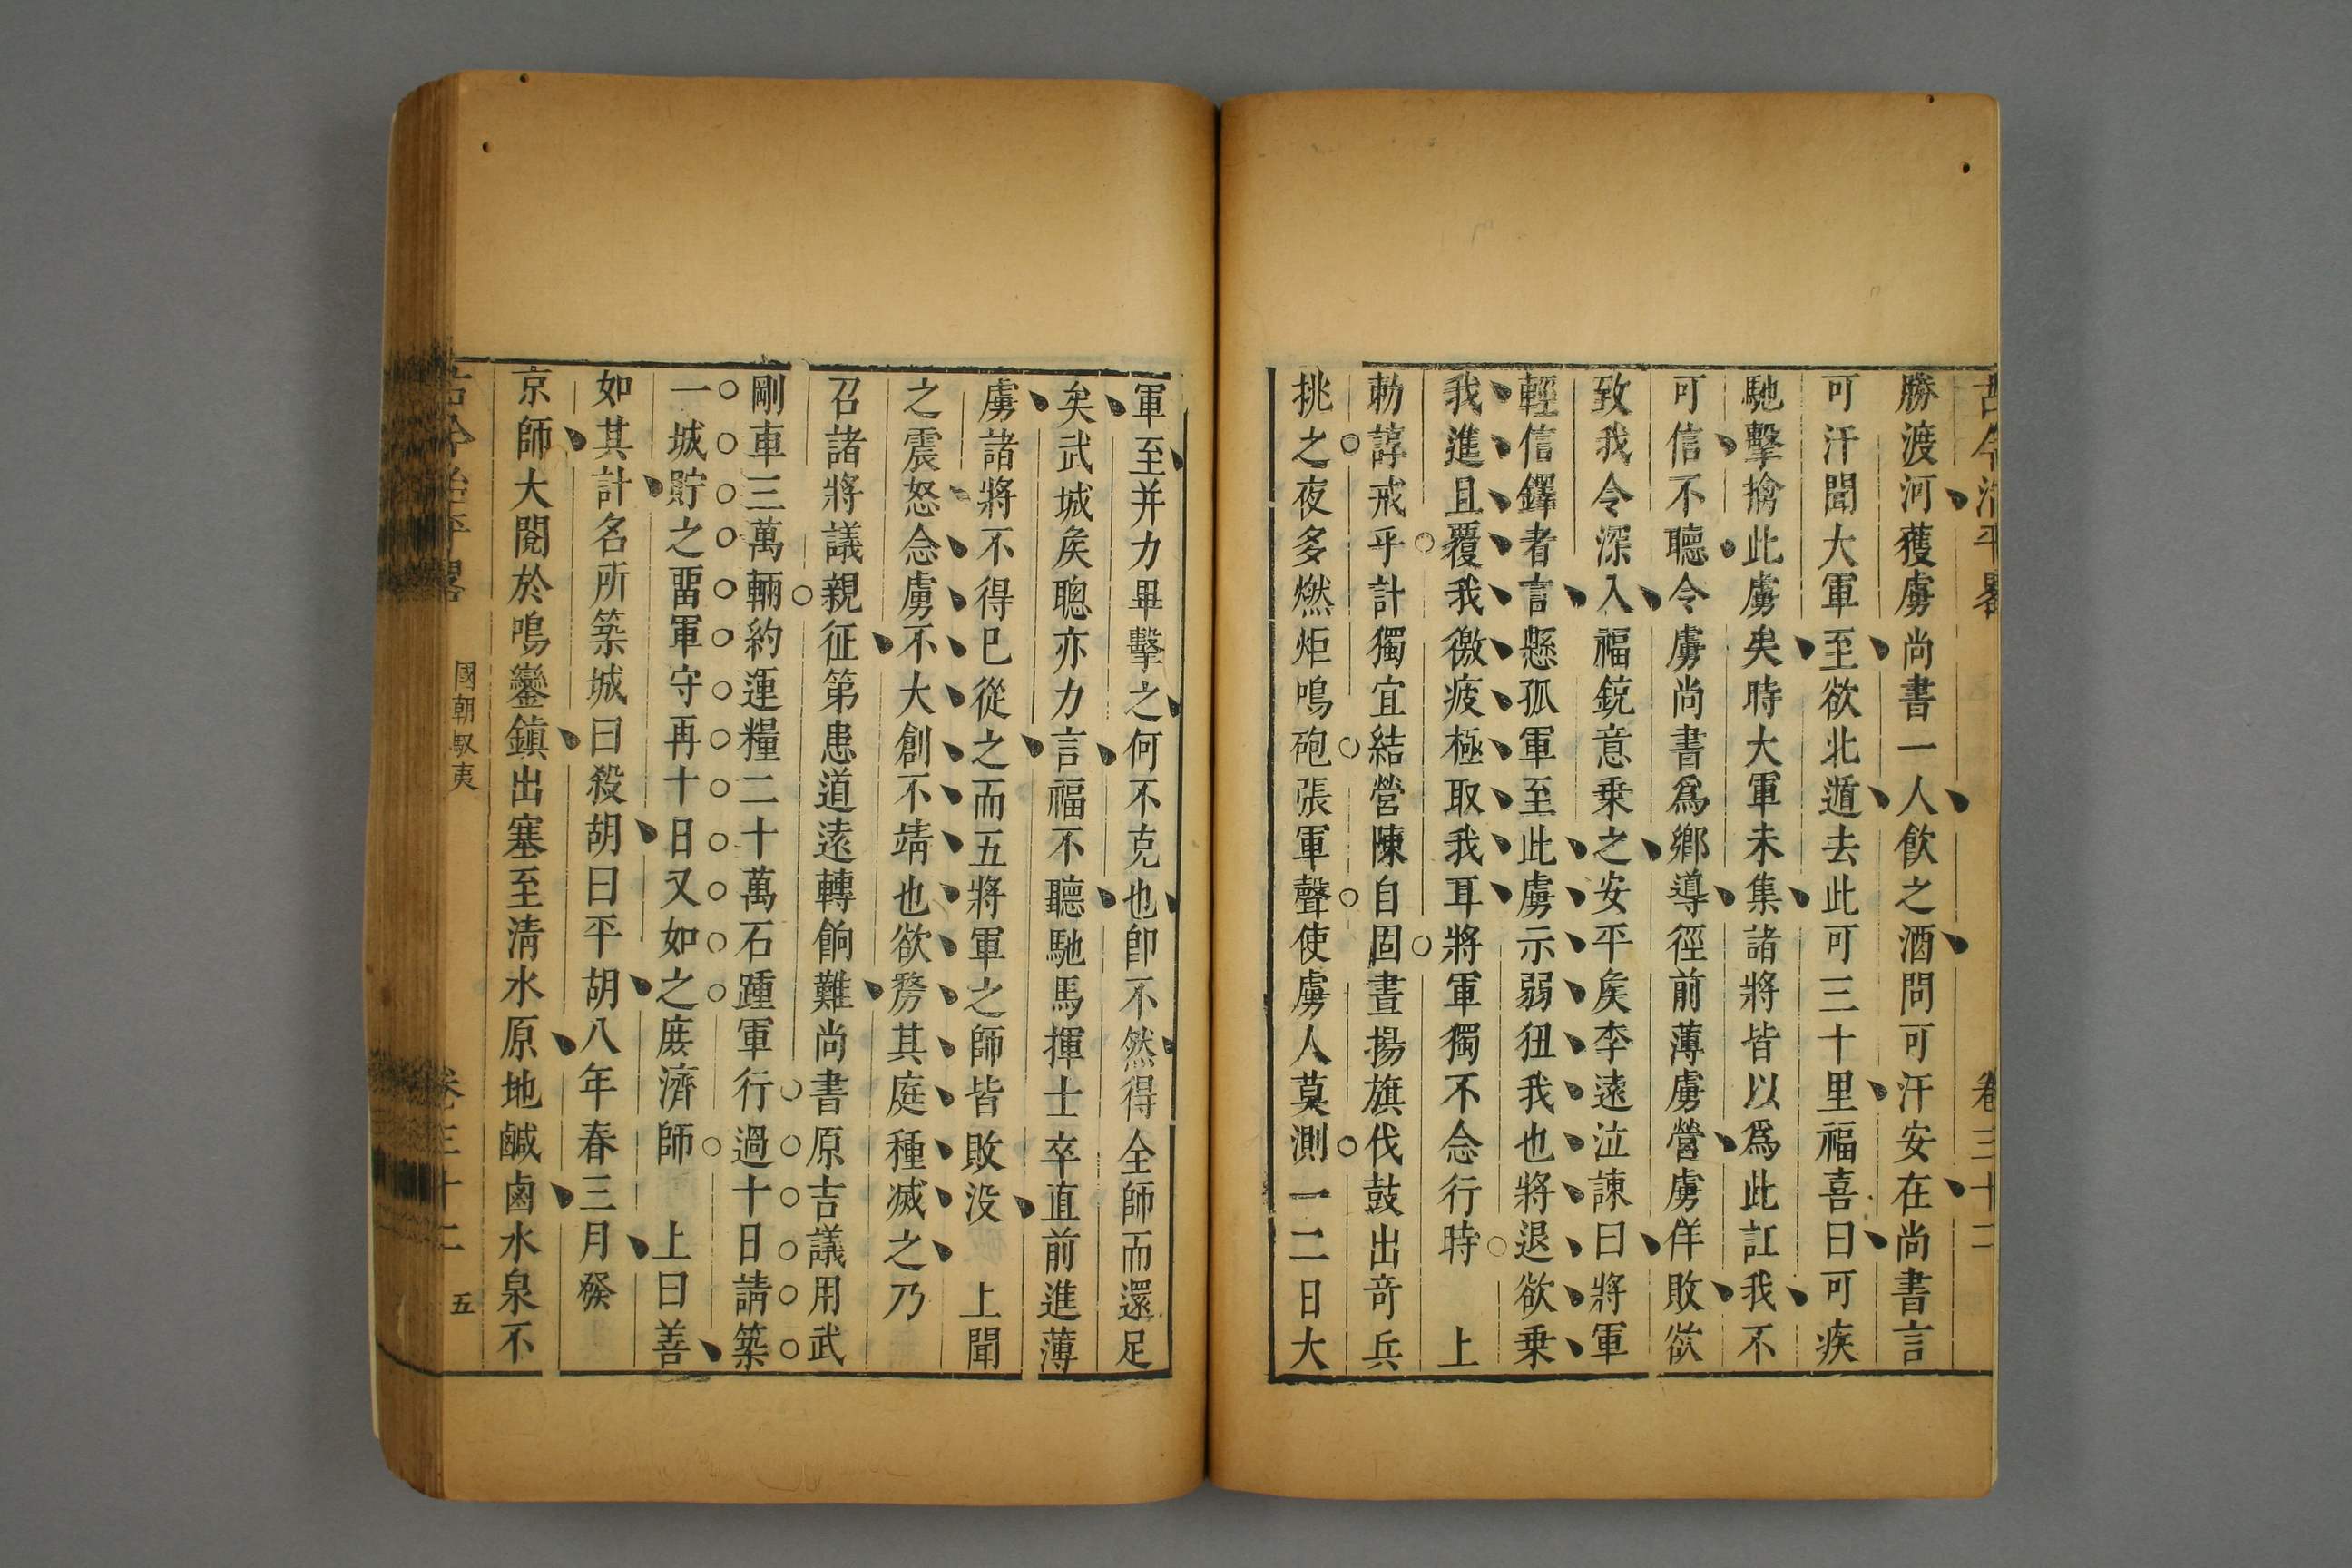 古今治平畧 卷三十二
勝渡河獲虜尚書一人飲之酒問可汗安在尚書言
可汗聞大軍至欲北遁去此可三十里福喜曰可疾
馳擊擒此虜矣時大軍未集諸將皆以爲此訌我不
可信不聽令虜尚書爲鄉導徑前薄虜營虜佯敗欲
致我令深入福銳意乗之安平矦李遠泣諫曰將軍
輕信鐸者言懸孤軍至此虜示弱狃我也將退欲乗
我進且覆我徼疲極取我耳將軍獨不念行時 上
勅諄戒乎計獨宜結營陳自固晝揚旗伐鼓出竒兵
挑之夜多燃炬鳴砲張軍聲使虜人莫測一二日大
軍至并力畢擊之何不克也卽不然得全師而還足
矣武城矦聰亦力言福不聽馳馬揮士卒直前進薄
虜諸將不得已從之而五將軍之師皆敗没 上聞
之震怒念虜不大創不靖也欲勠其庭種滅之乃
召諸將議親征第患道遠轉餉難尚書原吉議用武
剛車三萬輛約運糧二十萬石踵軍行過十日請築
一城貯之畱軍守再十日又如之庻濟師 上曰善
如其計名所築城曰殺胡曰平胡八年春三月癸
京師大閱於鳴鑾鎮出塞至清水原地鹹鹵水泉不
古今治平畧 國朝馭夷 卷三十二 五